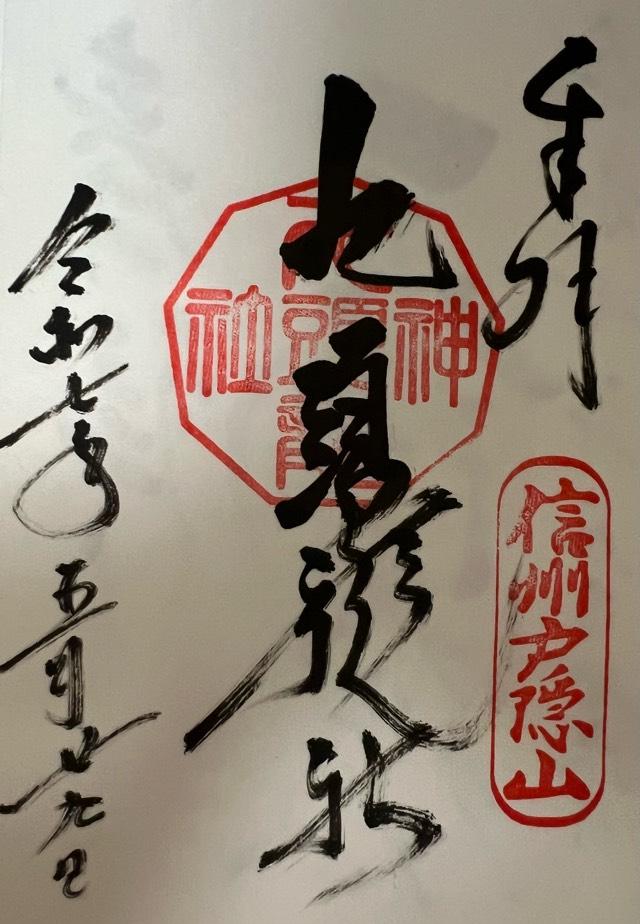 奉拝
信州戸隠山
九頭龍社
九頭龍
神
社
令和七年五月廿九日